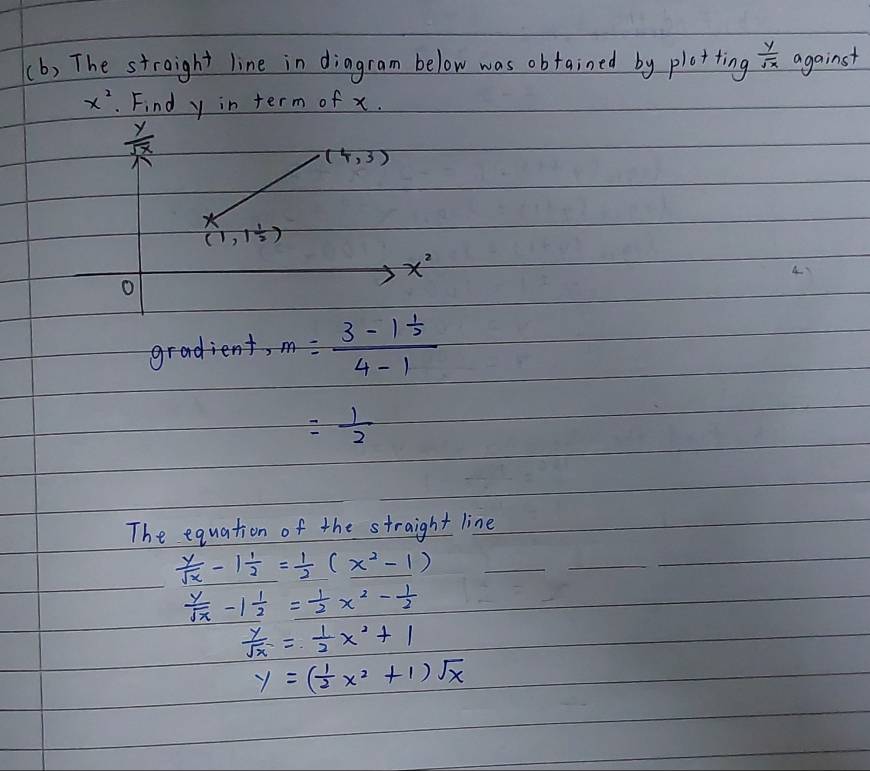 (b) The straight line in diagram below was obtained by plotting y/√x against
x². Find y in term of x.
y/√x
(4,3)
(1, 1 1/2)
x²
0
gradient, m = (3 - 1 1/2)/(4 - 1)
= 1/2
The equation of the straight line
y/√x - 1 1/2 = 1/2 (x² - 1)
y/√x - 1 1/2 = 1/2 x² - 1/2
y/√x = 1/2 x² + 1
y = (1/2 x² + 1) √x